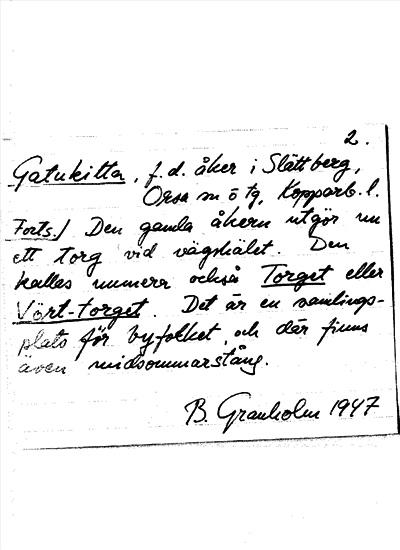 2.
Gatukitta, f.d. åker i Slättberg,
Orsa sn ö tg, Kopparb. l.
Forts./ Den gamla åkern utgör nu
ett torg vid vägskälet. Den
kallas numera också Torget eller
Vört-torget. Det är en samlings-
plats för byfolket, och där finns
även midsommarstång.
B. Granholm 1947